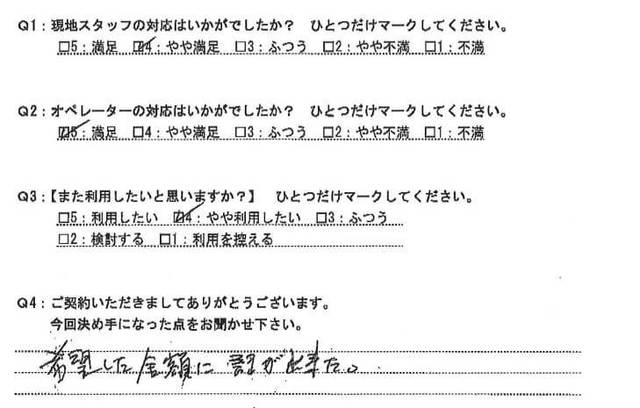 Q1：現地スタッフの対応はいかがでしたか？　ひとつだけマークしてください。
□5：満足　☑4：やや満足　□3：ふつう　□2：やや不満　□1：不満
Q2：オペレーターの対応はいかがでしたか？　ひとつだけマークしてください。
☑5：満足　□4：やや満足　□3：ふつう　□2：やや不満　□1：不満
Q3：【また利用したいと思いますか？】　ひとつだけマークしてください。
□5：利用したい　☑4：やや利用したい　□3：ふつう
□2：検討する　□1：利用を控える
Q4：ご契約いただきましてありがとうございます。
今回決め手になった点をお聞かせ下さい。
希望した金額に 話が出来た。